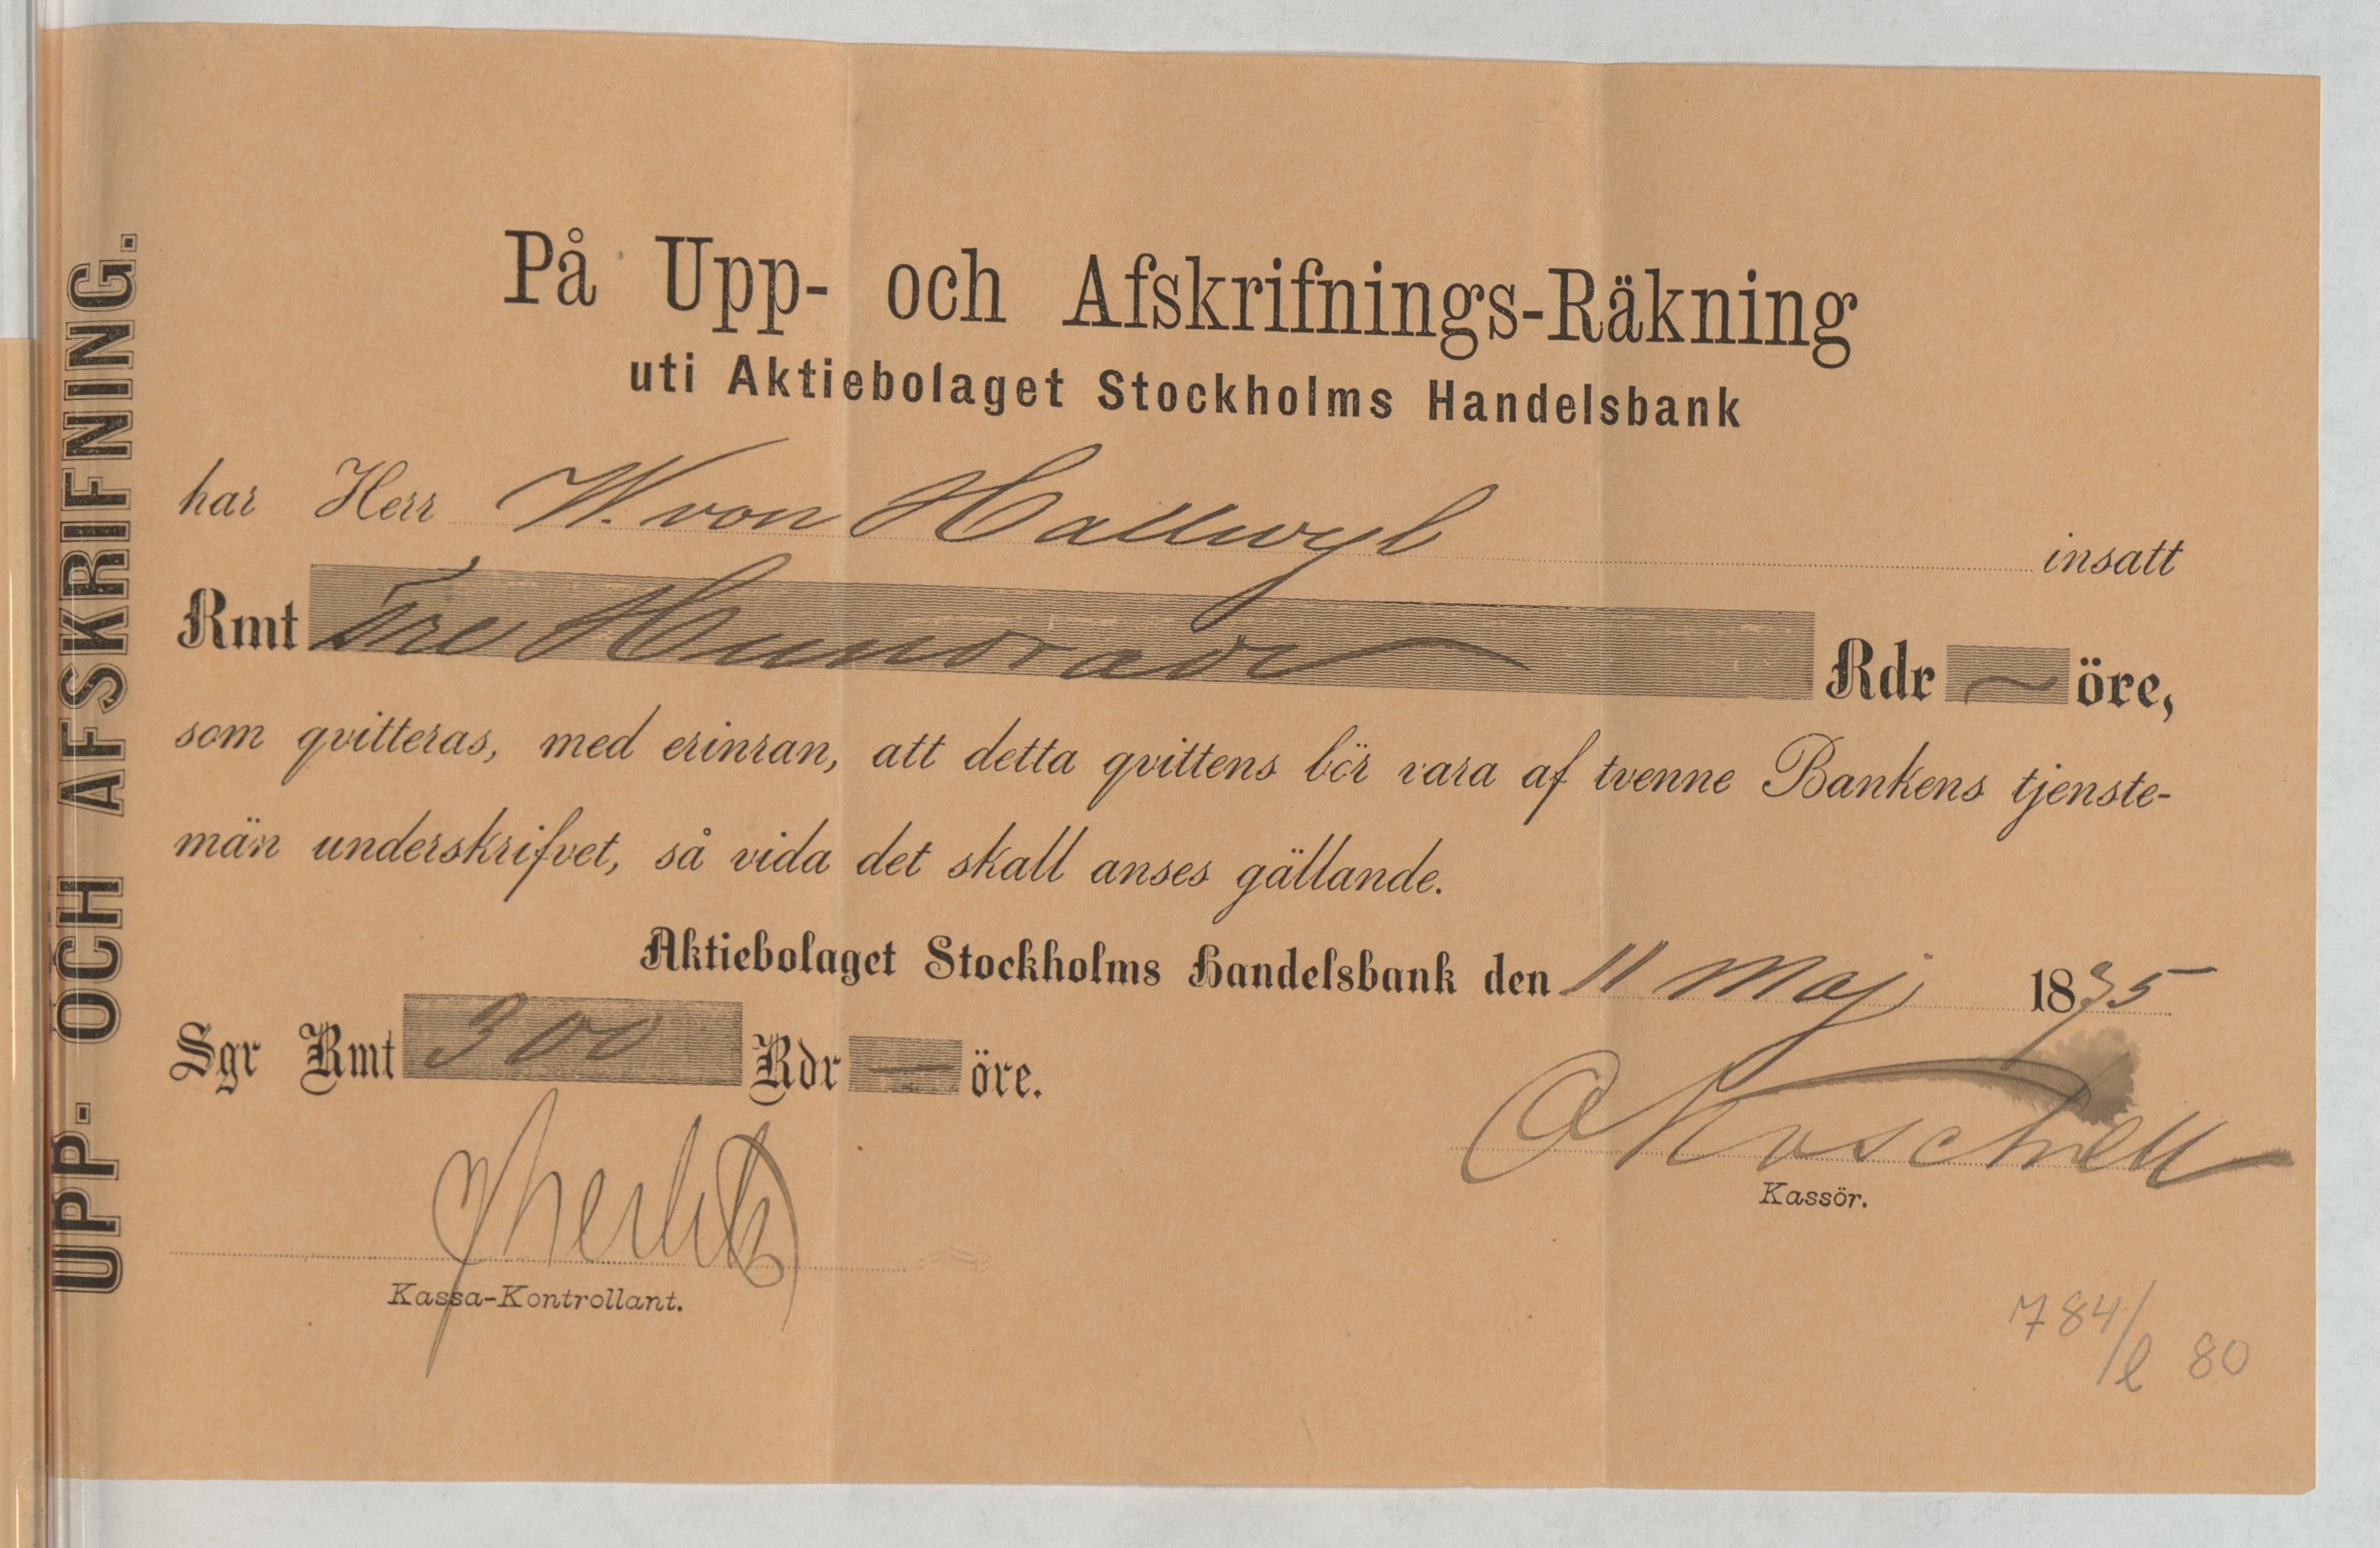 UPP- OCH AFSKRIFNING.
På Upp- och Afskrifnings-Räkning
uti Aktiebolaget Stockholms Handelsbank
har Herr W. von Hallwyl insatt
Rmt Tre Hundrade Rdr — öre,
som qvitteras, med erinran, att detta qvittens bör vara af tvenne Bankens tjenste-
män underskrifvet, så vida det skall anses gällande.
Aktiebolaget Stockholms Handelsbank den 11 Maj 1875
Sgr Rmt 300 Rdr — öre.
Kassör.
Kassa-Kontrollant.
784/l 80